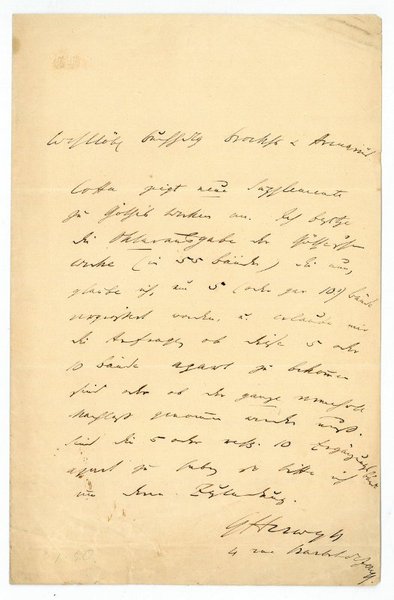 Wohllöbl Buchhdlg Brockhs & Avenarius
Cotta zeigt neue Supplemente
zu Göthe's Werken an. Ich besitze
die Oktavausgabe der Göthe'schen
Werke (in 55 Bänden) die nun,
glaube ich, um 5 (oder gar 10?) Bände
vergrößert worden, u. erlaube mir
die Anfrage, ob diese 5 oder
10 Bände apart zu bekommen
sind oder ob der ganze
Nachlaß genommen werden muß.
Sind die 5 oder resp. 10 Ergänzungsbände
apart zu haben, so bitte ich
um deren Zusendung.
G Herwegh
4 rue Barbet de Jouy.